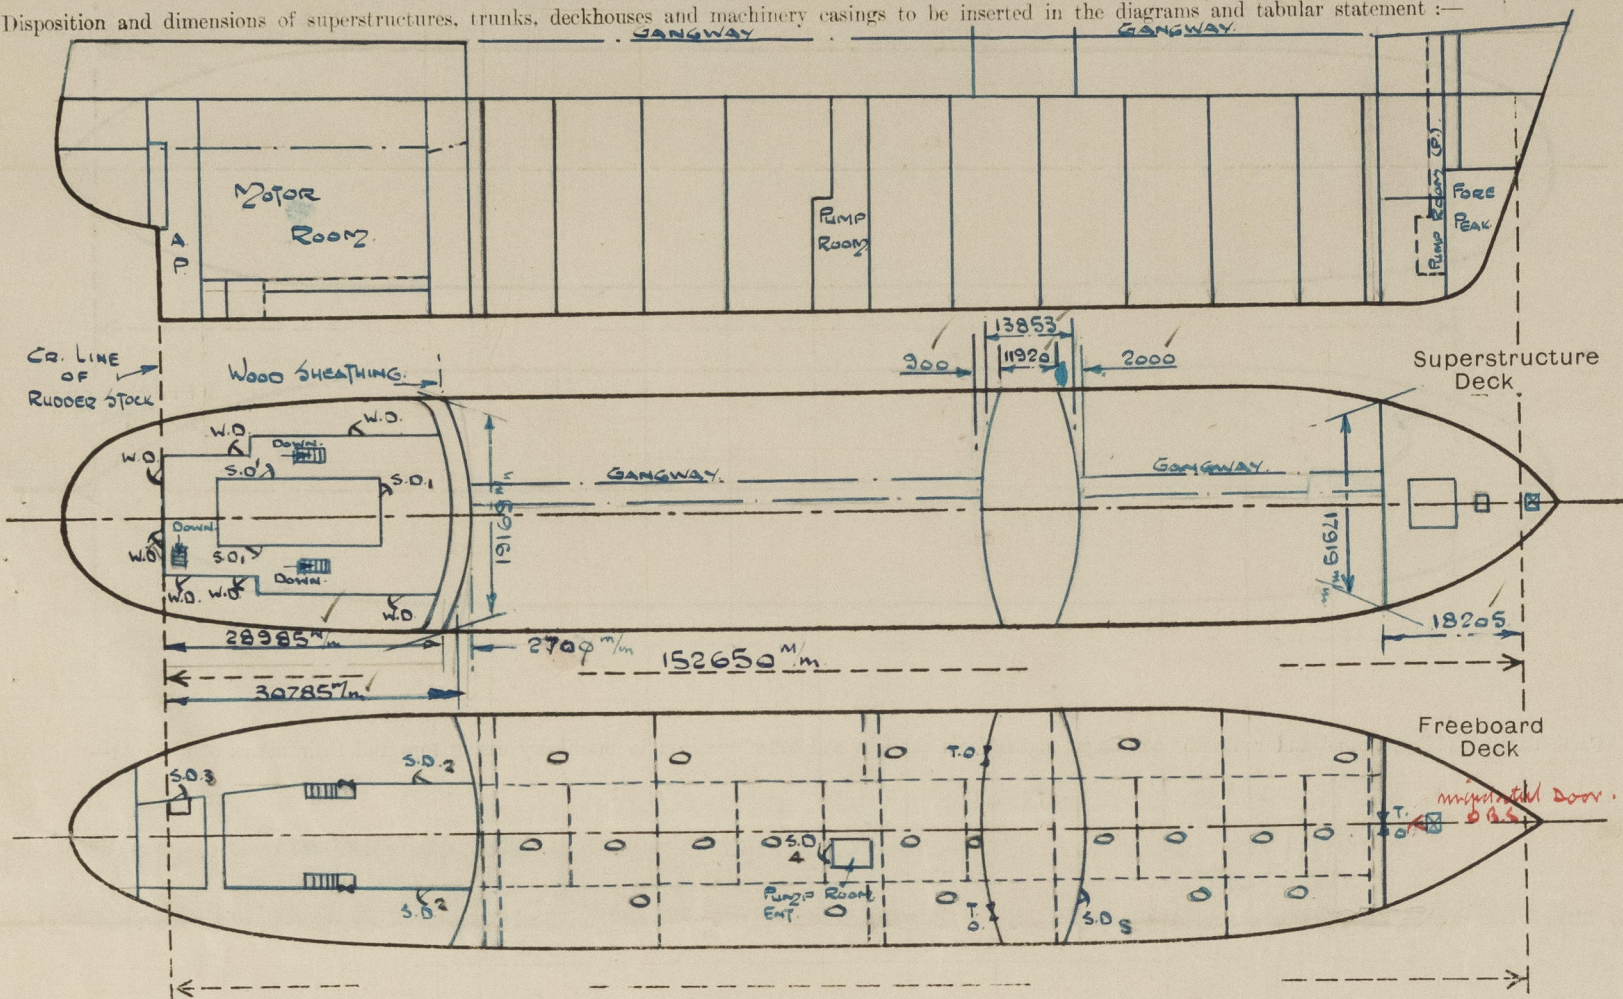 Disposition and dimensions of superstructures, trunks, deckhouses and machinery casings to be inserted in the diagrams and tabular statement :—
GANGWAY
GANGWAY.
MOTOR
ROOM.
A
P.
PUMP
ROOM
PUMP ROOM (P.S)
FORE
PEAK.
CR. LINE
OF
RUDDER STOCK
WOOD SHEATHING.
13853
900
11920
2000
Superstructure
Deck
W.D.
W.D.
W.D.
DOWN.
S.D.1
S.D.1
GANGWAY.
GANGWAY.
19169 m/m
17919 m/m
DOWN.
W.D.
S.D.1
DOWN.
W.D. W.D.
W.D.
28985 m/m
2700 m/m
152650 M/m.
18205
30785 m/m
Freeboard
Deck
S.D.3
S.D.2
T.O.
Door.
T.
O
S.D
4
PUMP ROOM
ENT.
S.D.2
T.
O.
S.D 5